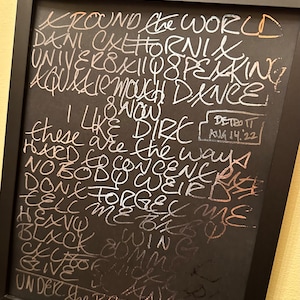 AROUND the WORLD
DANI CALIFORNIA
UNIVERSALLY SPEAKING
AQUATIC MOUTH DANCE
SNOW
I LIKE DIRT
DETROIT
AUG 14, '22
these are the ways
HARD TO CONCENTRATE
NOBODY WEIRD
DON'T FORGET ME
TELL ME BABY
HEAVY WING
BLACK SUMMER
GIVE
UNDER